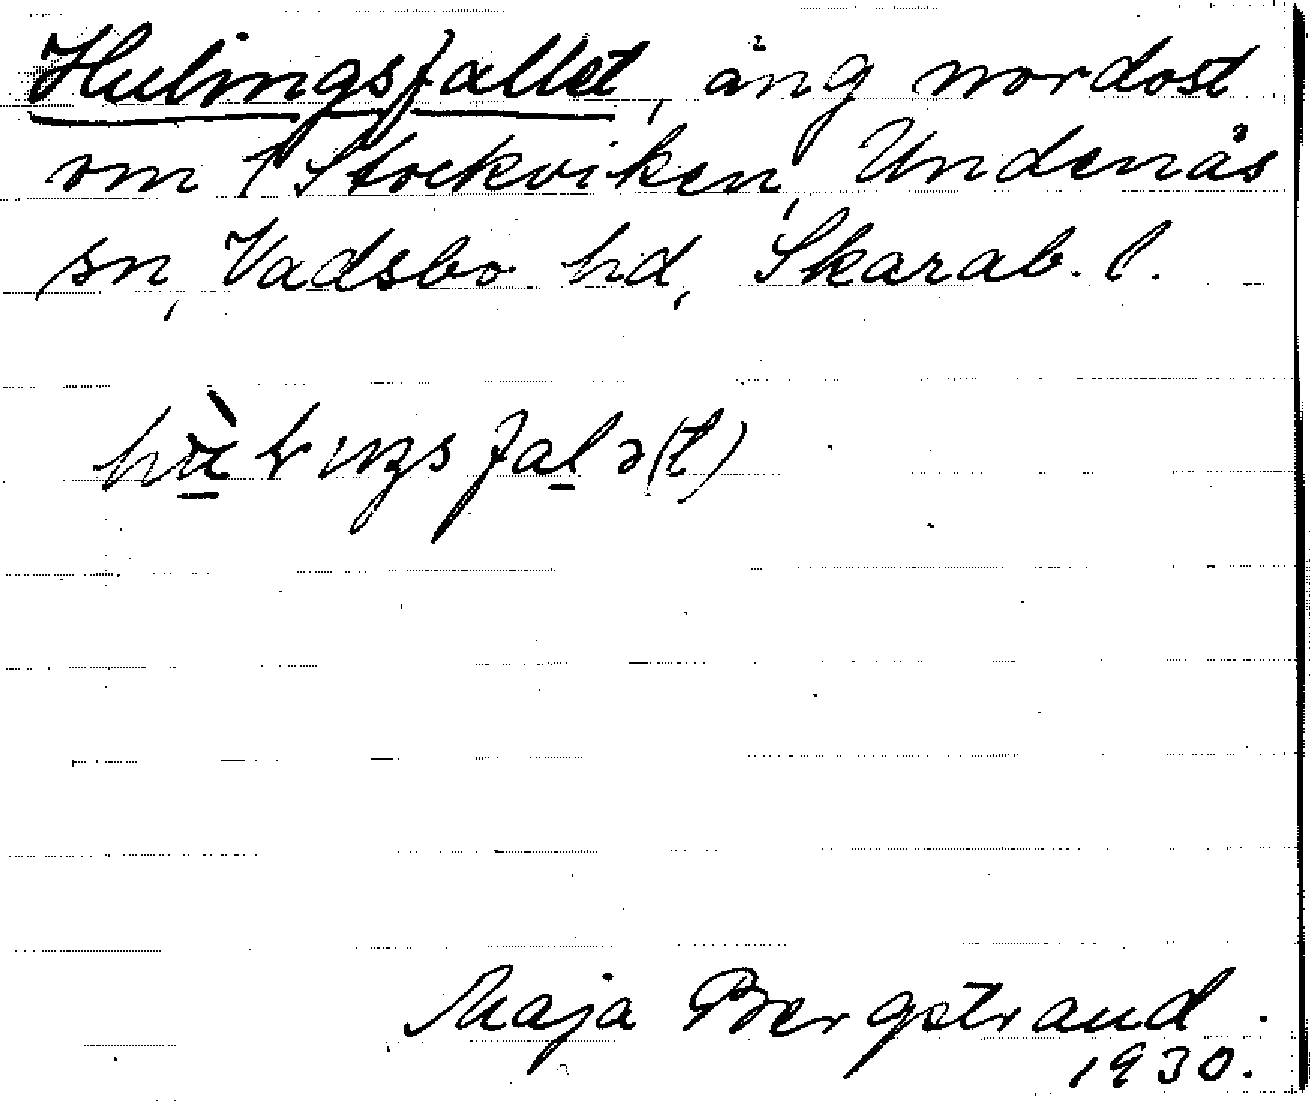 Hulingsfallet, äng nordost
om † Stockviken, Undenäs
sn, Vadsbo hd, Skarab. l.
Maja Bergstrand.
1930.